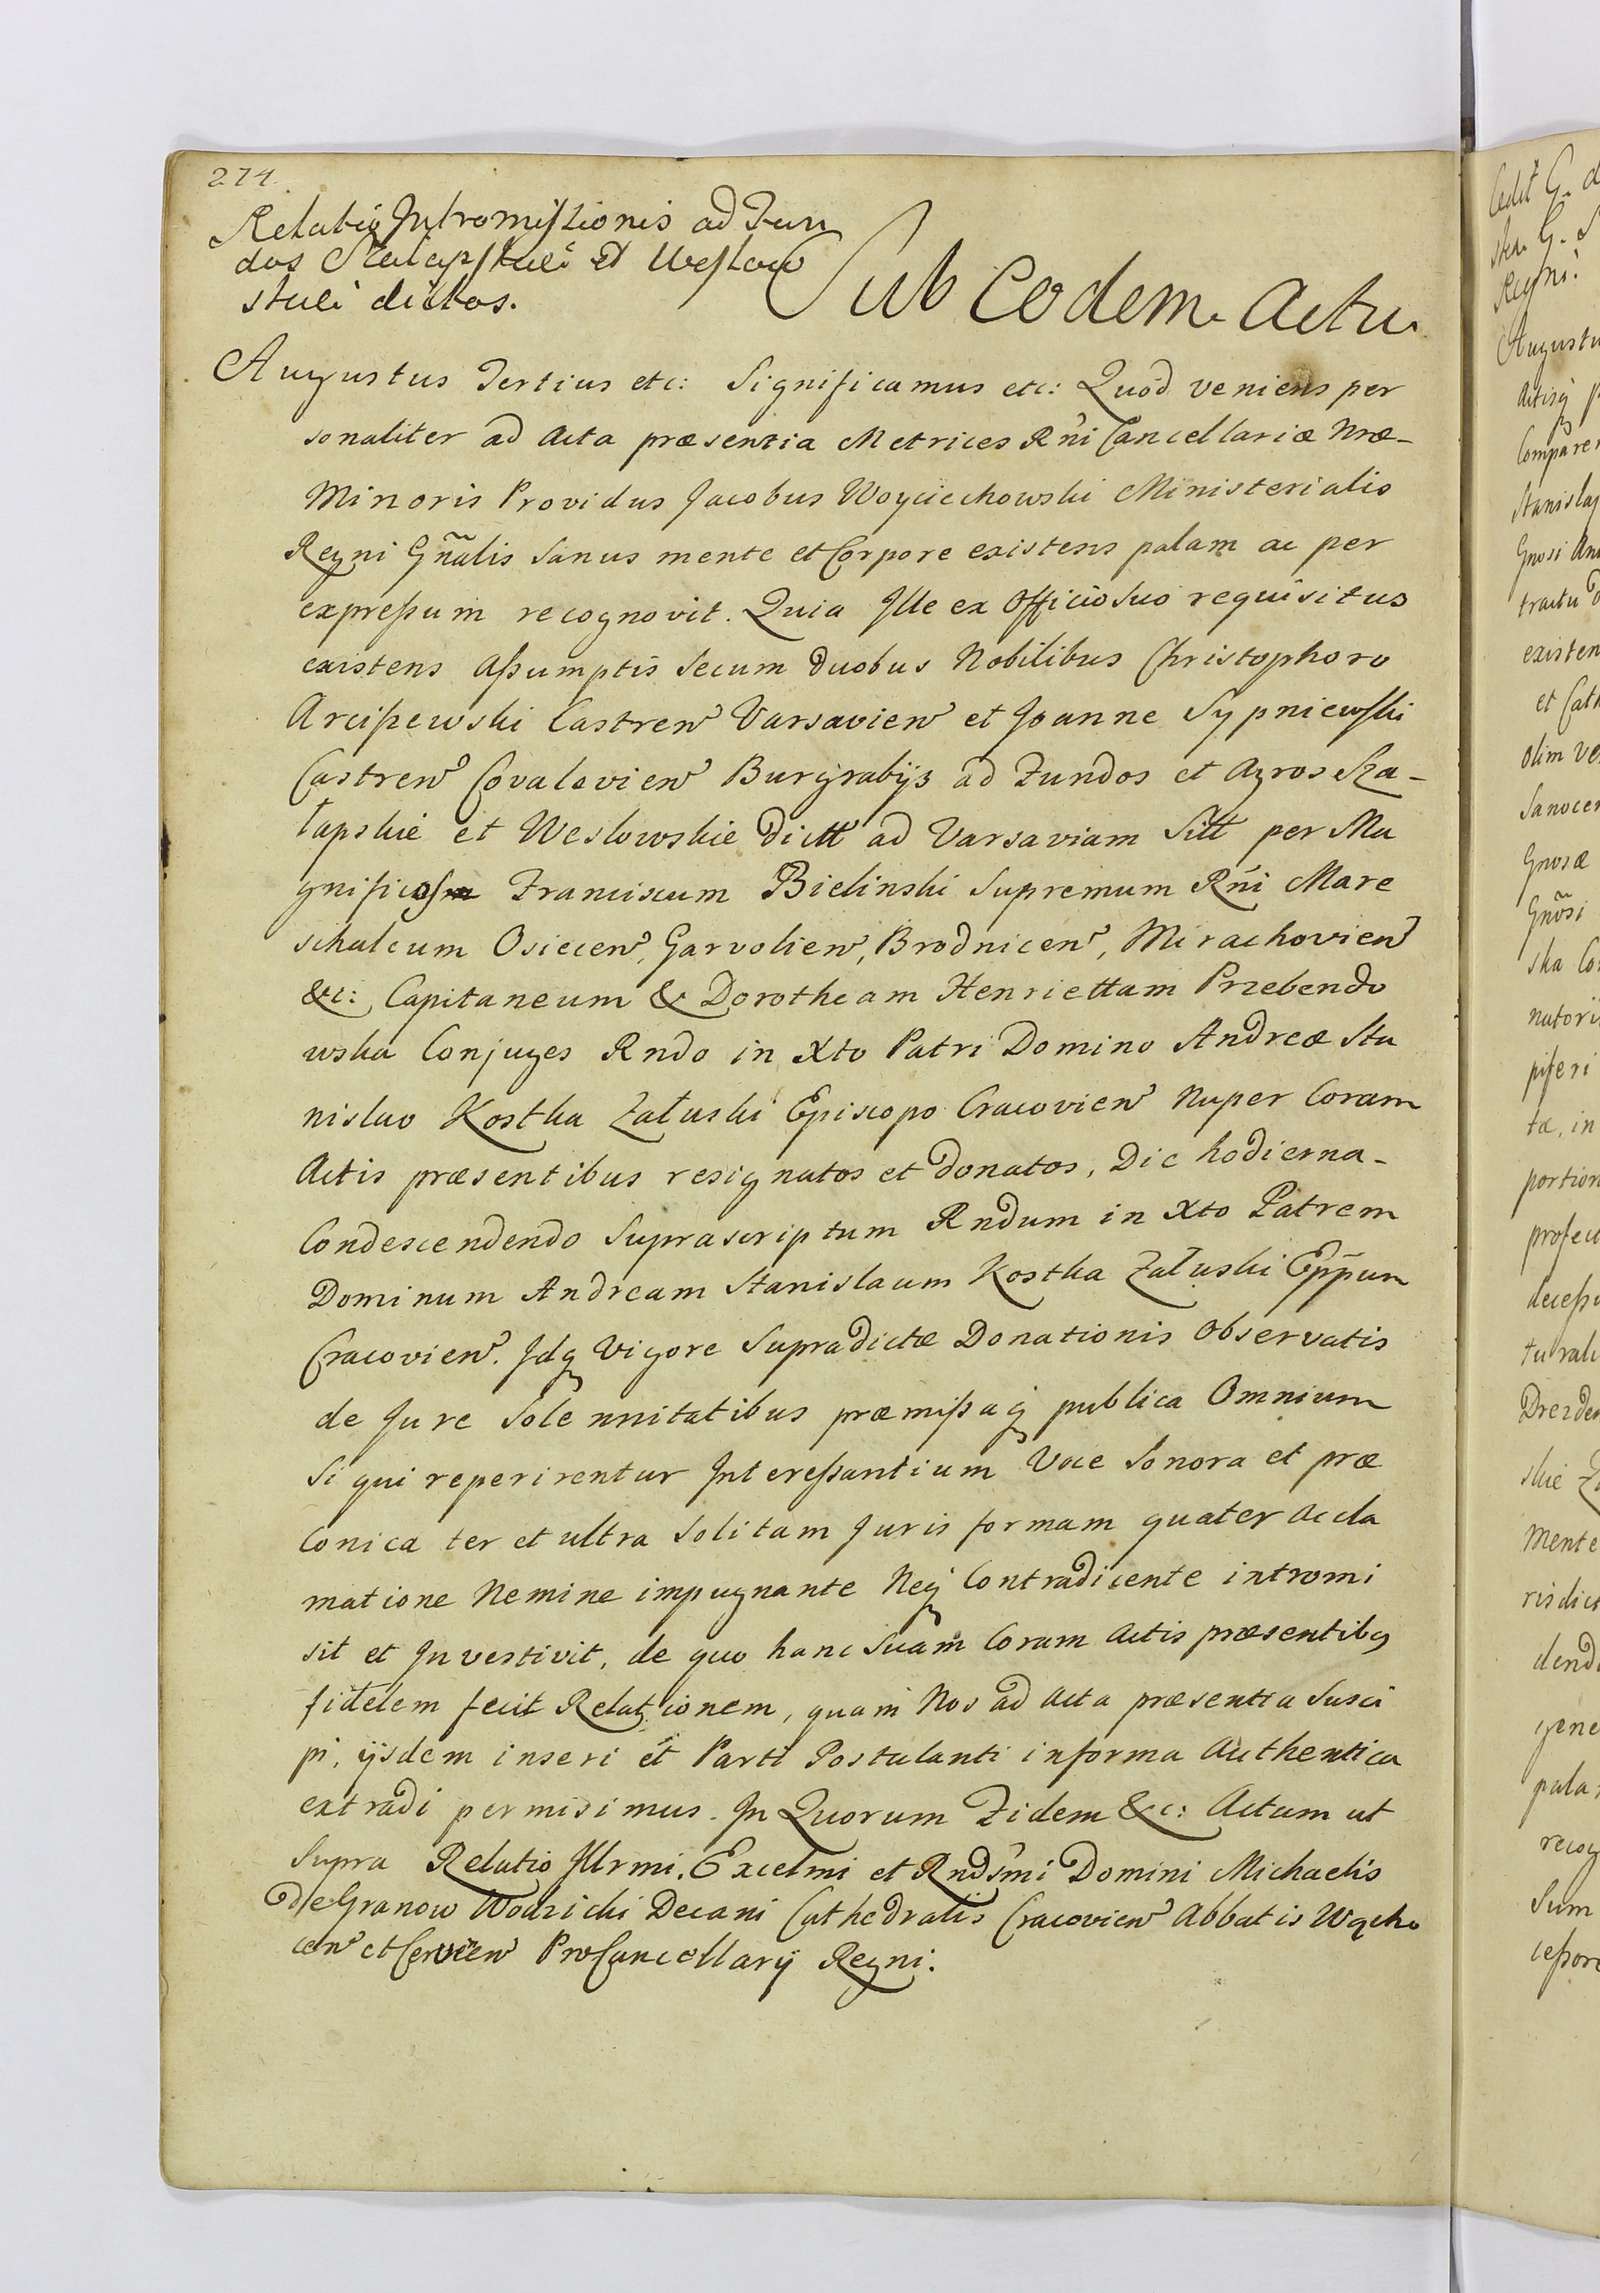 274.
Relatio Intromissionis ad Fun
dos Szalapskie et Weslow
skie dictos.
Sub Eodem Actu
Augustus Tertius etc: Significamus etc: Quod veniens per
sonaliter ad Acta præsentia Metrices Rñi Cancellariæ Nræ-
Minoris Providus Jacobus Woyciechowski Ministerialis
Regni Gñalis Sanus mente et Corpore existens palam ac per
expressum recognovit. Quia Ille ex Officio Suo requisitus
existens Assumptis Secum Duobus Nobilibus Christophoro
Arciszewski Castren Varsavien et Joanne Sypniewski
Castren Covalevien Burgrabijs ad Fundos et Agros Sza-
łapskie et Weslowskie Dictt ad Varsaviam Sitt per Ma
gnificos Franciscum Bielinski Supremum Rñi Mare
schalcum Osiecen, Garvolien, Brodnicen, Mirachovien
&c: Capitaneum & Dorotheam Henriettam Przebendo
wska Conjuges Rndo in Xto Patri Domino Andreæ Sta
nislao Kostka Załuski Episcopo Cracovien Nuper Coram
Actis præsentibus resignatos et donatos, Die hodierna-
Condescendendo Suprascriptum Rndum in Xto Patrem
Dominum Andream Stanislaum Kostka Załuski Epp̃um
Cracovien. Idq Vigore Supradictæ Donationis Observatis
de Jure Solennitatibus præmissaq publica Omnium
Si qui reperirentur Interessantium Voce Sonora et præ
Conica ter et ultra Solitam Juris formam quater Accla
matione Nemine impugnante Neq Contradicente intromi
sit et Investivit, de quo hanc Suam Coram Actis præsentibq
fidelem fecit Relationem, quam Nos ad Acta præsentia Susci
pi, ijsdem inseri et Parti Postulanti in forma Authentica
extradi permisimus. In Quorum Fidem &c: Actum ut
Supra Relatio Illrmi. Excelmi et Rndsmi Domini Michaelis
De Granow Wodzicki Decani Cathedralis Cracovien Abbatis Wącho
cen et Procancellarij Regni.
Augustu
Actisq
Stanislaq
existen
olim
Gnosæ
Gnõsi
natori
portion
Mente
gene
pala
Sum